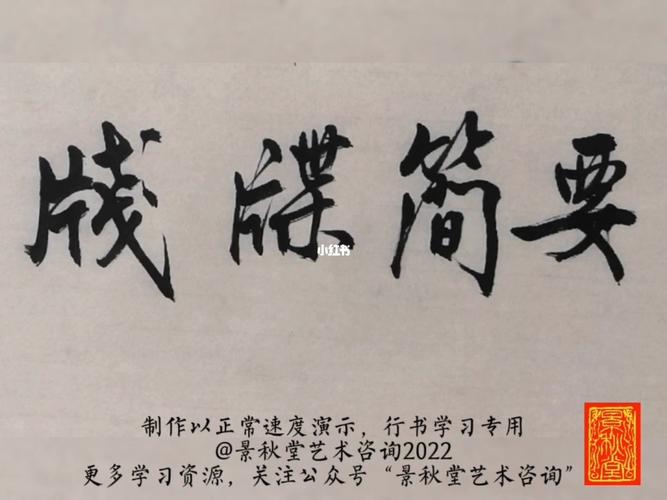 牋牒简要
小红书
制作以正常速度演示，行书学习专用
@景秋堂艺术咨询2022
更多学习资源，关注公众号“景秋堂艺术咨询”
景秋堂